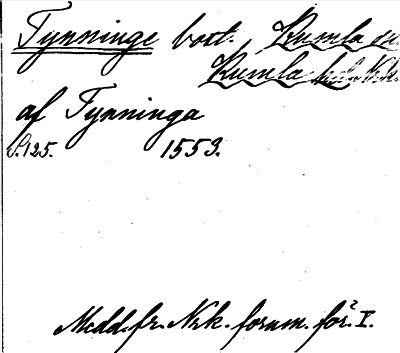 Tynninge bort. Kumla sn.
Kumla hd. Nrk.
af Tynninga
S. 125. 1553.
Medd. fr. Nrk. fornm. för. I.